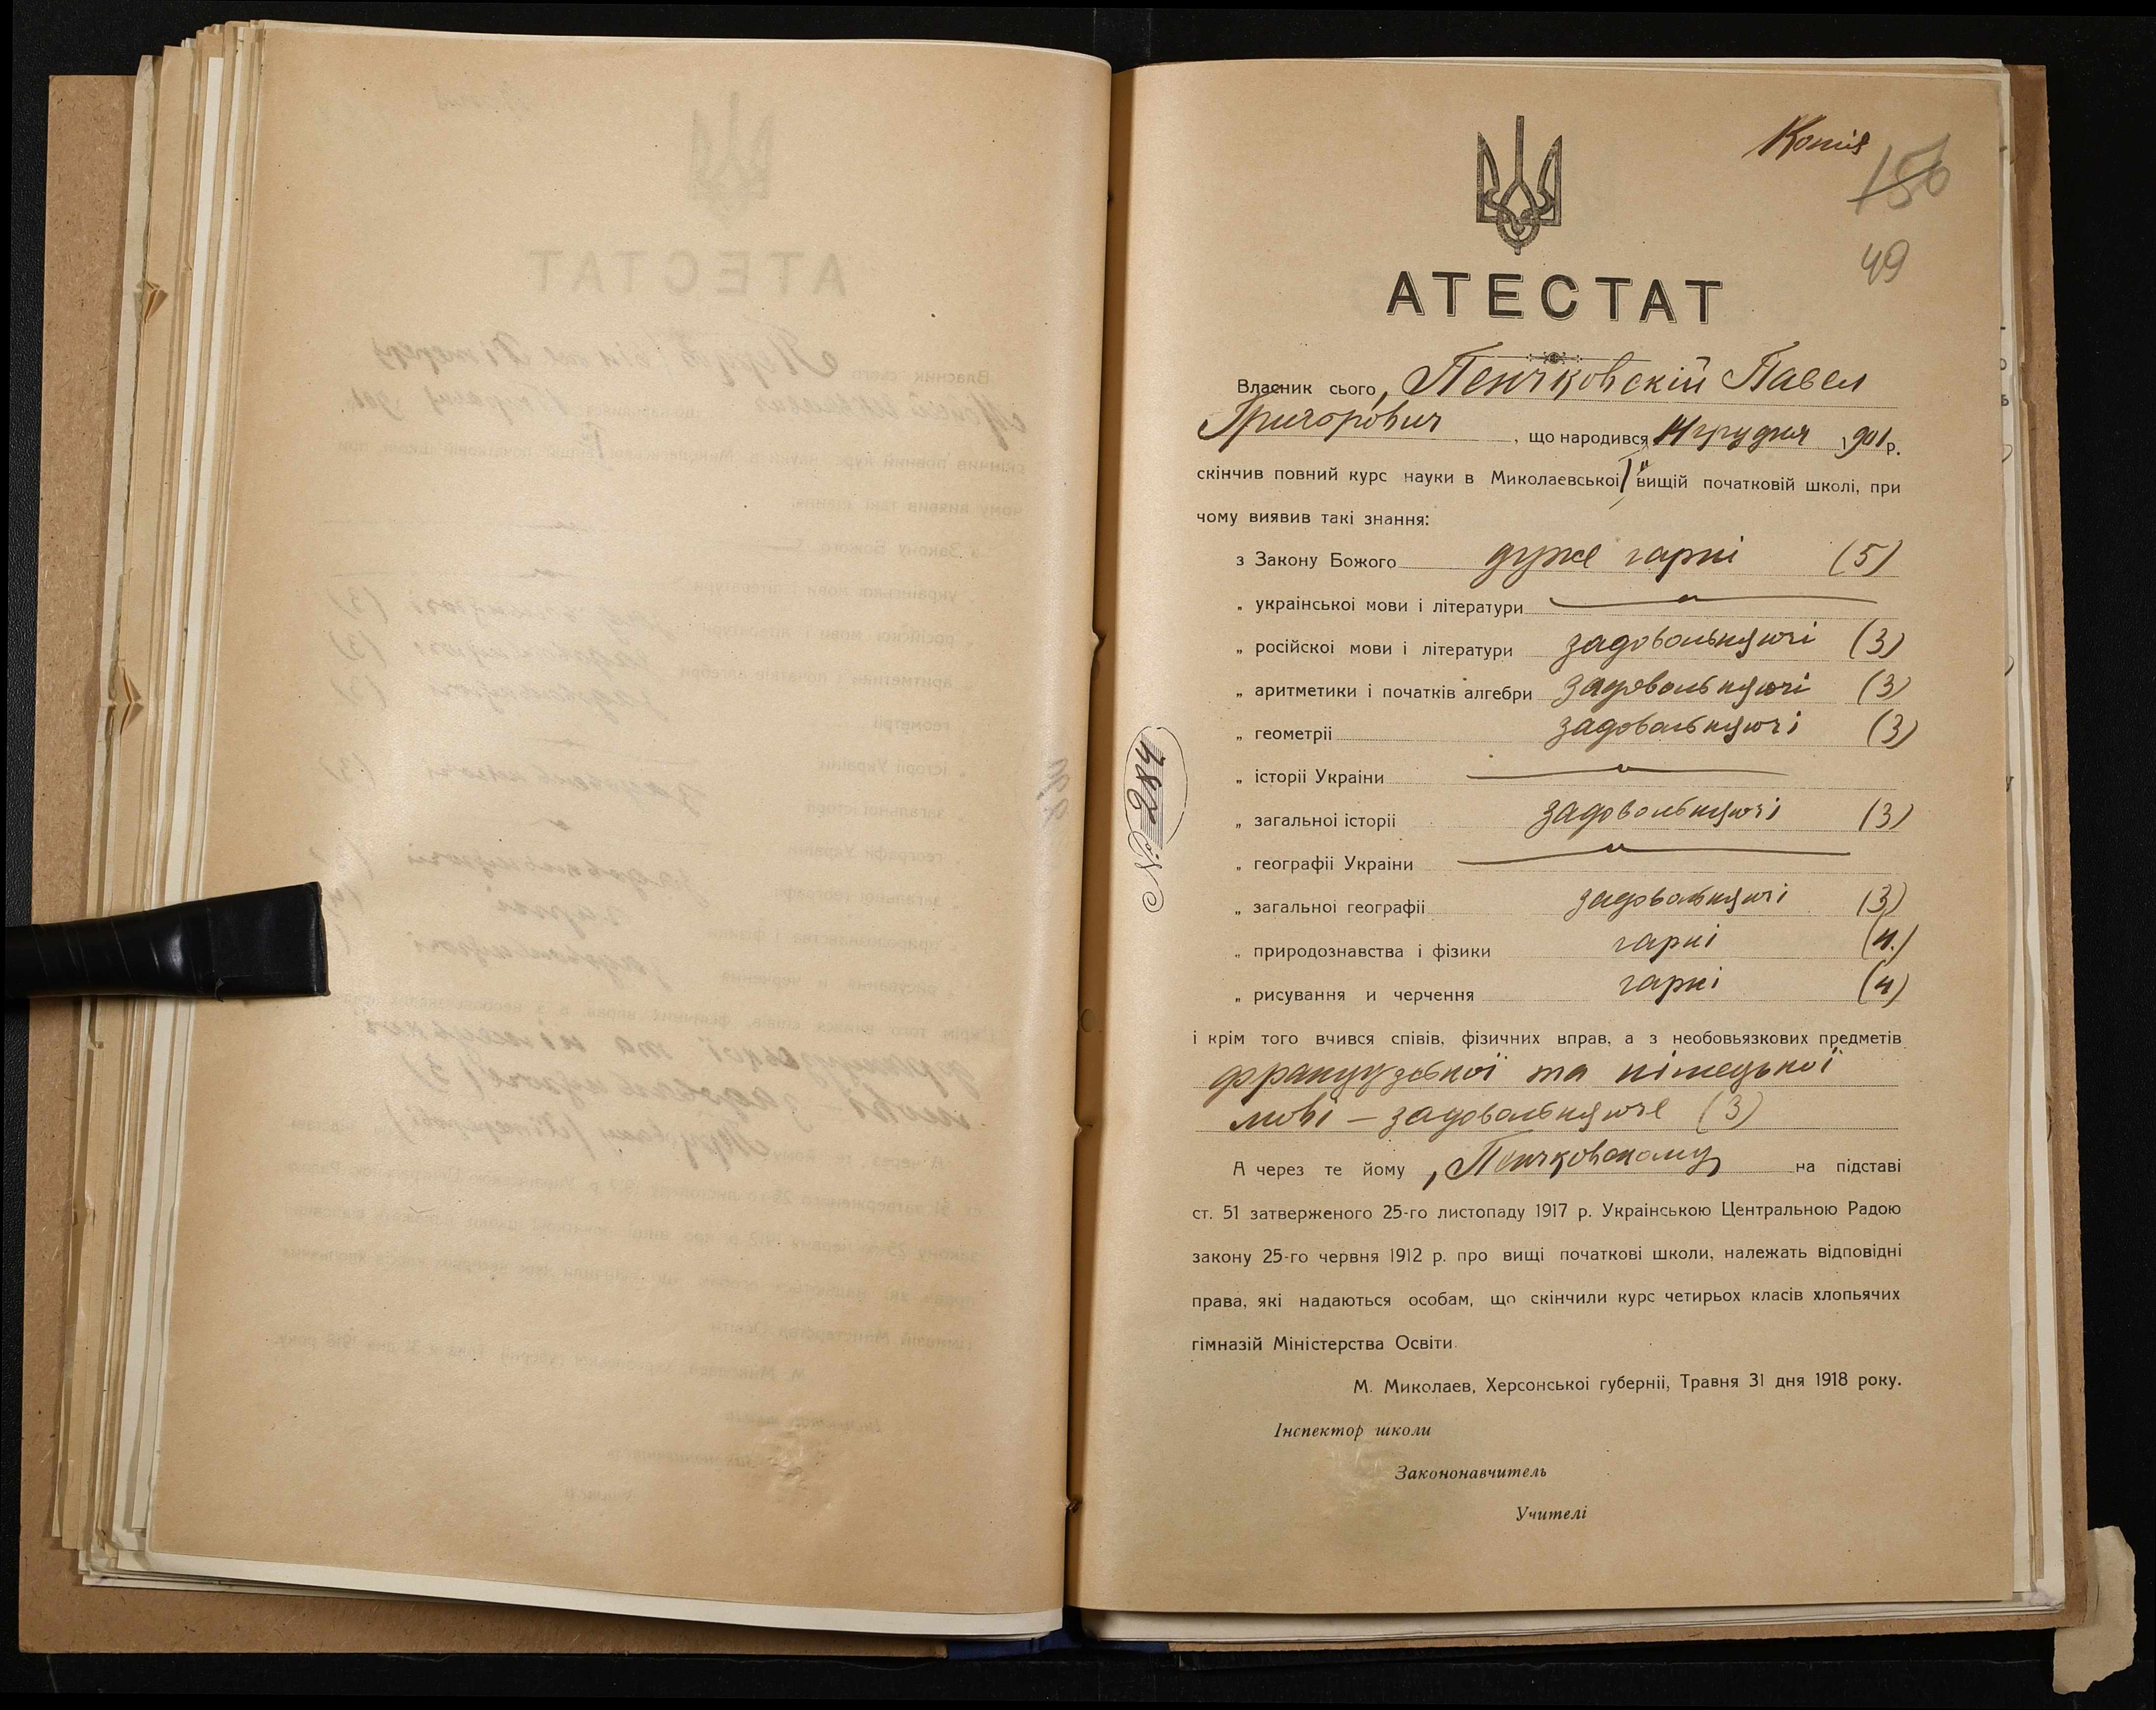 Копія
150
49
АТЕСТАТ
Власник сього, Пенчковскій Павел
Григорович, що народився 14 грудня 1901 р.
скінчив повний курс науки в Миколаевськоі I й вищій початковій школі, при
чому виявив такі знання:
з Закону Божого дуже гарні (5)
„ украінськоі мови і літератури
„ російскоі мови і літератури задовольняючі (3)
„ аритметики і початків алгебри задовольняючі (3)
„ геометріі задовольняючі (3)
„ історіі Украіни
„ загальноі історіі задовольняючі (3)
„ географіі Украіни
„ загальноі географіі задовольняючі (3)
„ природознавства і фізики гарні (4)
„ рисування и черчення гарні (4)
і крім того вчився співів, фізичних вправ, а з необовьязкових предметів
французської та німецької
мові – задовольняюче (3)
А через те йому, Пенчковскому на підставі
ст. 51 затверженого 25-го листопаду 1917 р. Украінською Центральною Радою
закону 25-го червня 1912 р. про вищі початкові школи, належать відповідні
права, які надаються особам, що скінчили курс четирьох класів хлопьячих
гімназій Міністерства Освіти.
М. Миколаев, Херсонськоі губерніі, Травня 31 дня 1918 року.
Інспектор школи
Законовчитель
Учителі
№ 284